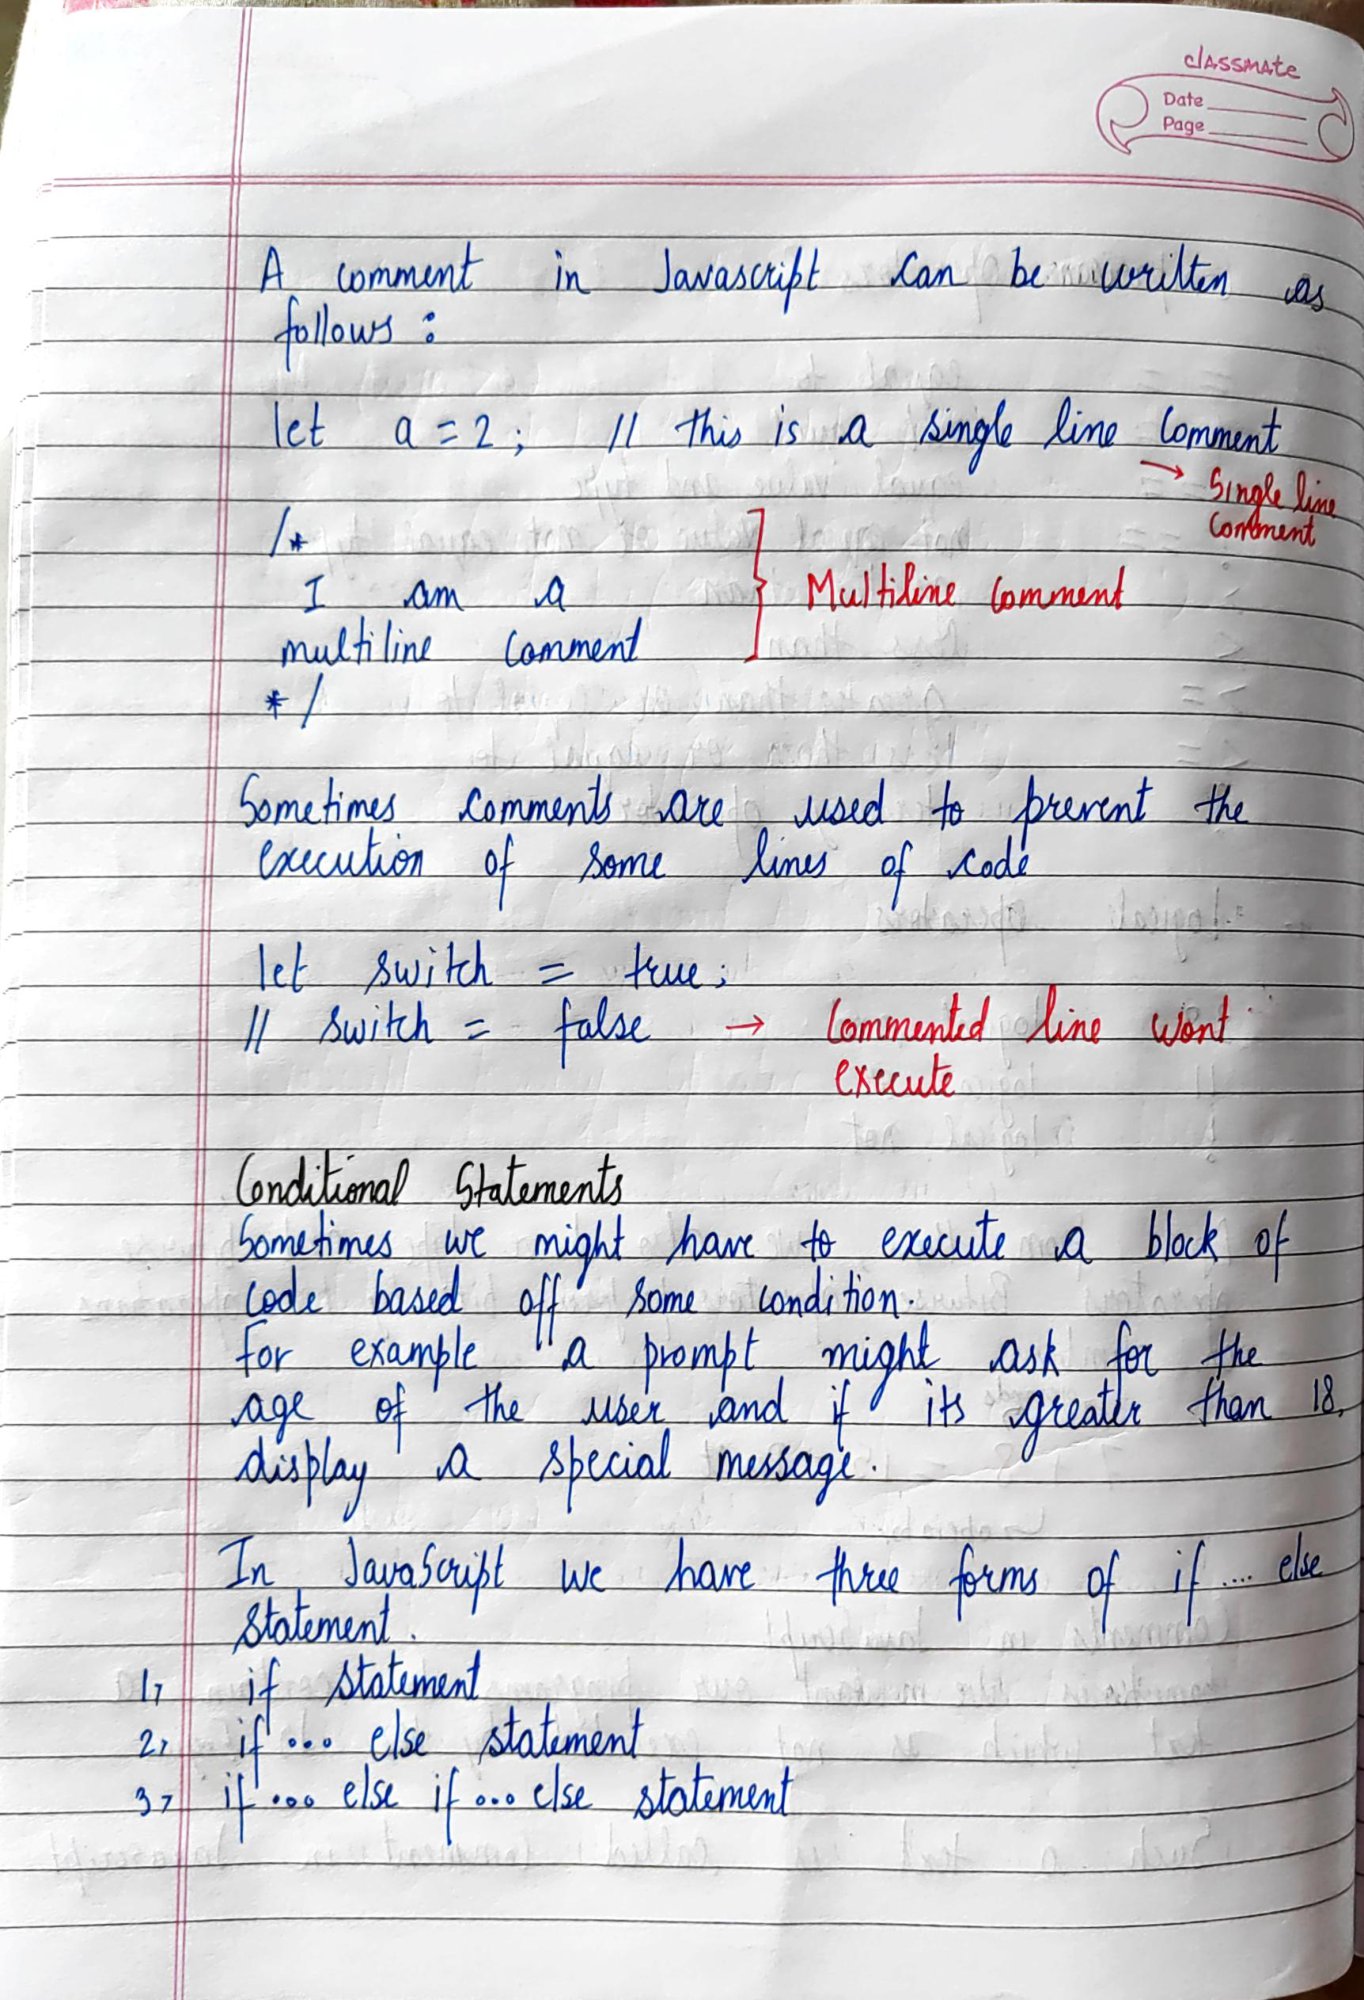 classmate
Date
Page
A comment in Javascript can be written as
follows :
let a = 2 ; // this is a single line comment
→ Single line
comment
/*
I am a
multiline comment
*/
} Multiline comment
Sometimes comments are used to prevent the
execution of some lines of code
let switch = true ;
// switch = false → Commented line wont
execute
Conditional Statements
Sometimes we might have to execute a block of
code based off some condition.
For example a prompt might ask for the
age of the user and if its greater than 18,
display a special message.
In JavaScript we have three forms of if .... else
statement.
1, if statement
2, if ... else statement
3, if ... else if ... else statement